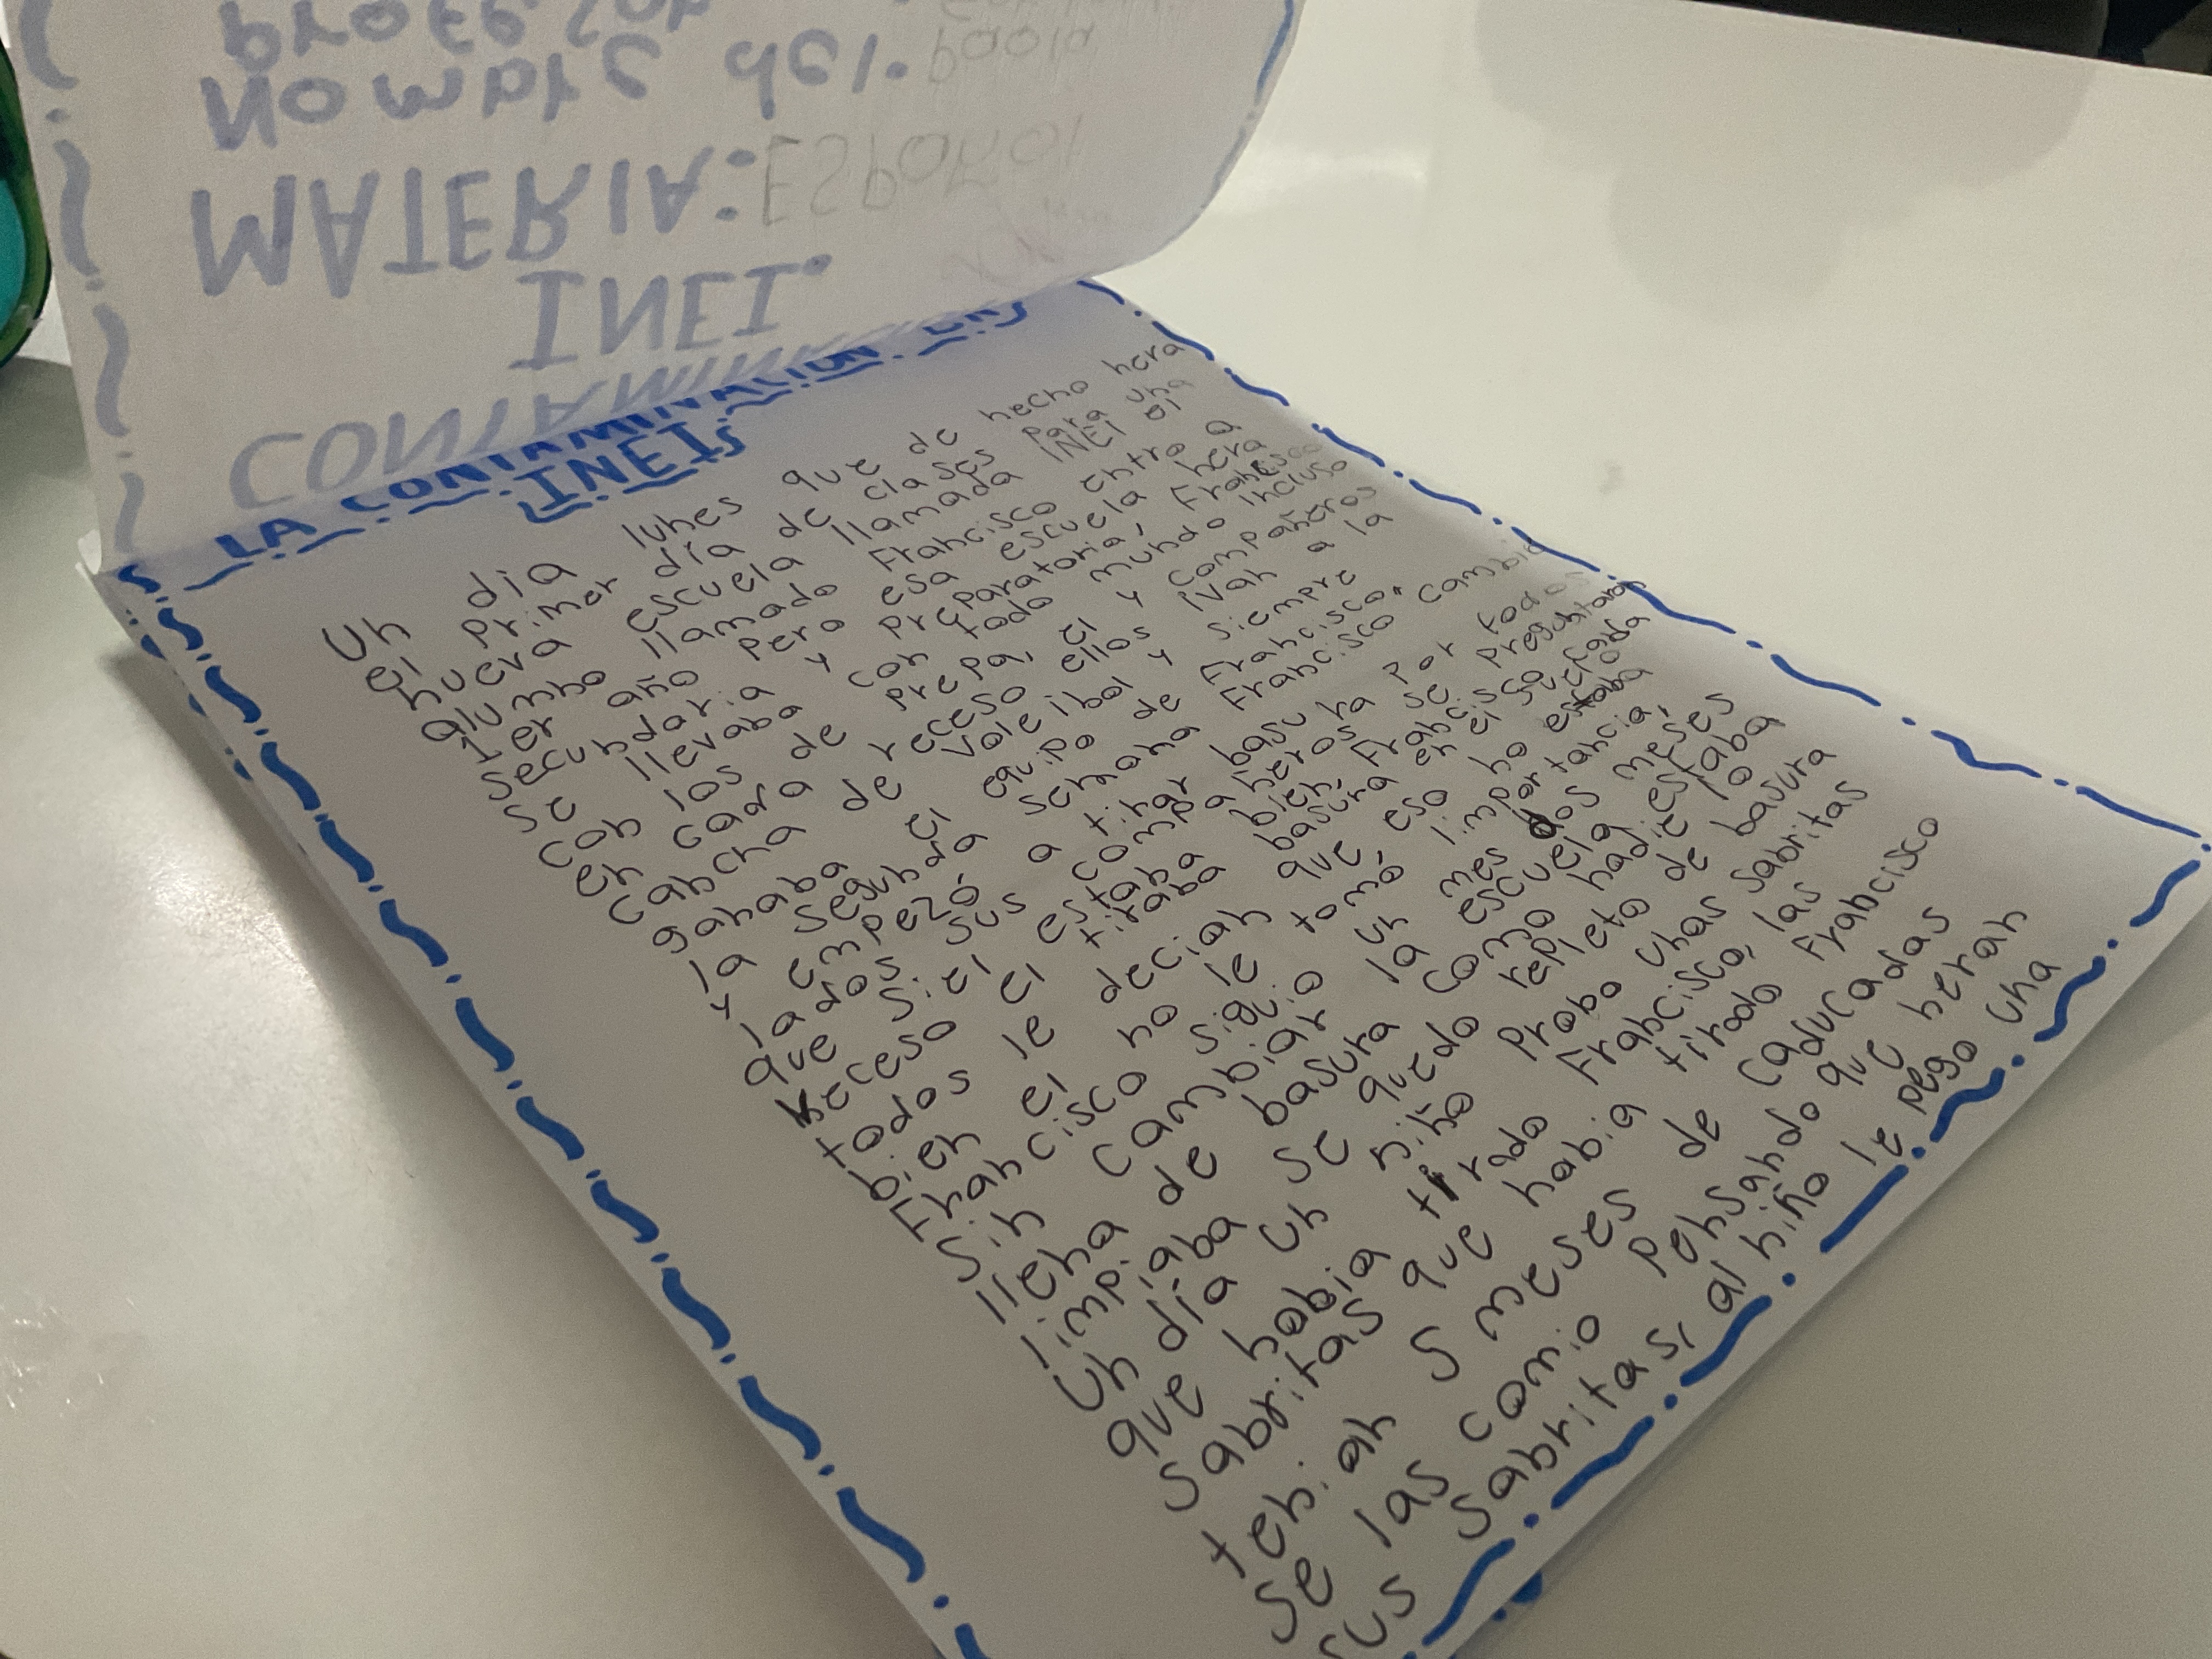 LA CONTAMINACION EN
INEI
Un dia lunes que de hecho hera
el primer día de clases para una
nueva escuela llamada INEI el
alumno llamado Francisco entro a
1er año pero esa escuela hera
secundaria y preparatoria, Francisco
se llevaba con todo mundo incluso
con los de prepa, el y compañeros
en cada receso ellos ivan a la
cancha de voleibol y siempre
ganaba el equipo de Francisco.
la segunda semana Francisco cambio
y empezó a tirar basura por todos
lados sus compañeros se preguntaban
que si el estaba bien, Francisco cada
receso el tiraba basura en el suelo
todos le decian que eso no estaba
bien el no le tomó importancia,
Francisco siguio un mes dos meses
sin cambiar la escuela estaba
llena de basura como nadie lo
limpiaba se quedo repleto de basura
Un día un niño probo unas sabritas
que habia tirado Francisco, las
sabritas que habia tirado Francisco
tenian 5 meses de caducadas
se las comio pensando que heran
sus sabritas, al niño le pego una
CONTAMI
INEI.
MATERIA: ESPAÑOL
Nombre del. paola
profesor